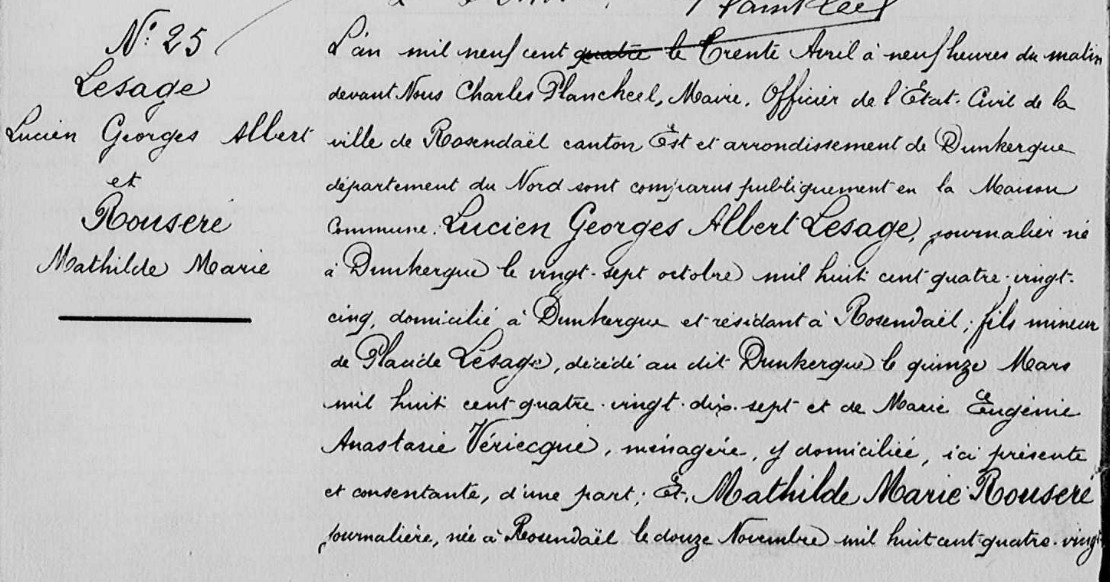 N° 25
Lesage
Lucien Georges Albert
et
Rouseré
Mathilde Marie
L'an mil neuf cent quatre le Trente Avril à neuf heures du matin
devant Nous Charles Plancheel, Maire, Officier de l'Etat-Civil de la
ville de Rosendaël canton Est et arrondissement de Dunkerque
département du Nord sont comparus publiquement en la Maison
Commune. Lucien Georges Albert Lesage, journalier né
à Dunkerque le vingt-sept octobre mil huit cent quatre-vingt-
cinq, domicilié à Dunkerque et résidant à Rosendaël; fils mineur
de Plaude Lesage, décédé au dit Dunkerque le quinze Mars
mil huit cent quatre-vingt-dix-sept et de Marie Eugénie
Anastasie Vériecque, ménagère, y domiciliée, ici présente
et consentante, d'une part; Et, Mathilde Marie Rouseré
journalière, née à Rosendaël le douze Novembre mil huit cent quatre-vingt